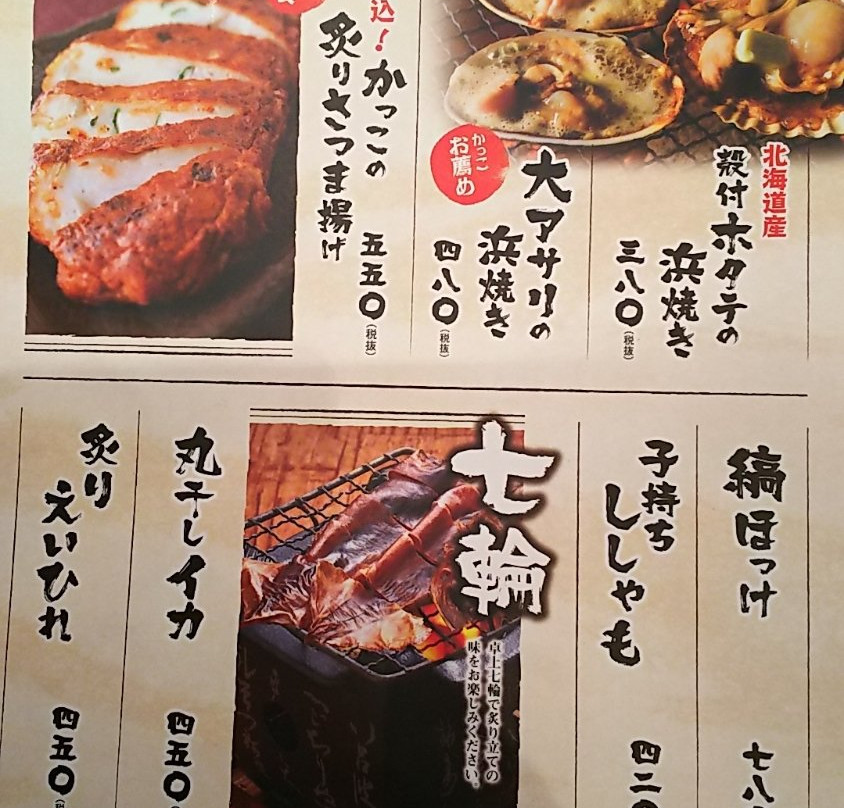 北海道産
殻付ホタテの
浜焼き
三八〇(税抜)
大アサリの
浜焼き
四八〇(税抜)
かっこ
お薦め
込!
かっこの
炙りさつま揚げ
五五〇(税抜)
縞ほっけ
七八
子持ち
ししゃも
四二〇
七輪
卓上七輪で炙り立ての
味をお楽しみください。
丸干しイカ
四五〇
炙り
えいひれ
四五〇